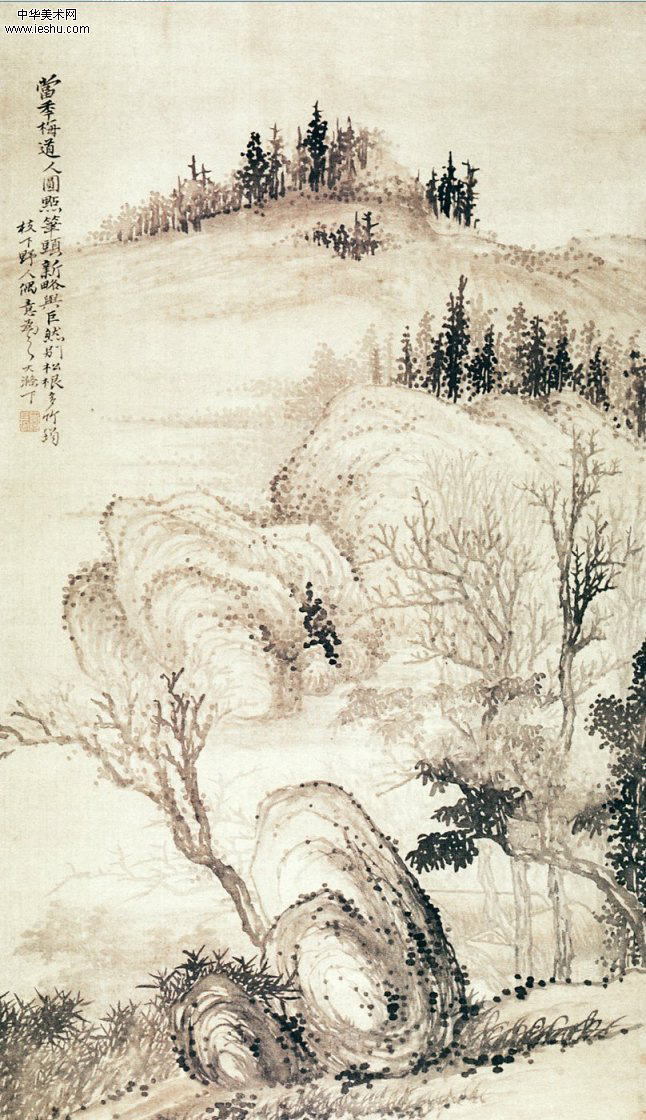 中华美术网
www.ieshu.com
當秊梅道人圓點筆頭新略與巨然別松根多竹筠
枝下野人偶意為之大滌下